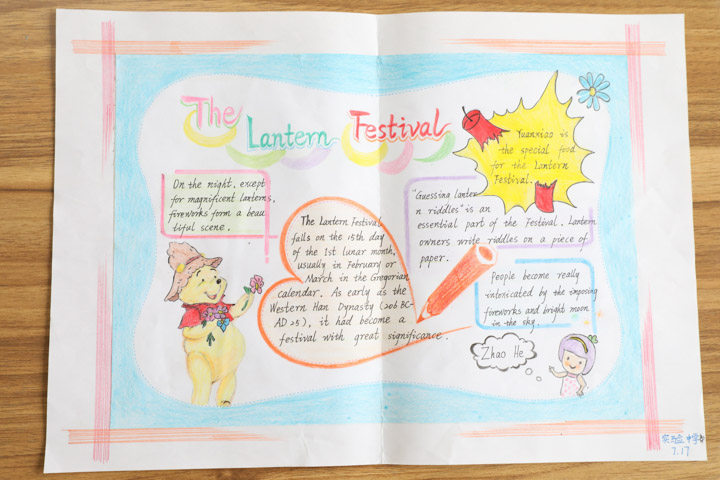 The Lantern Festival
On the night, except
for magnificent lanterns,
fireworks form a beau
tiful scene.
The Lantern Festival
falls on the 15th day
of the 1st lunar month,
usually in February or
March in the Gregorian
calendar. As early as the
Western Han Dynasty (206 BC-
AD 25), it had become a
festival with great significance.
Yuanxiao is
the special food
for the Lantern
Festival.
"Guessing lanter
n riddles" is an
essential part of the Festival. Lantern
owners write riddles on a piece of
paper.
People become really
intoxicated by the imposing
fireworks and bright moon
in the sky.
Zhao He
实验中学
7.17